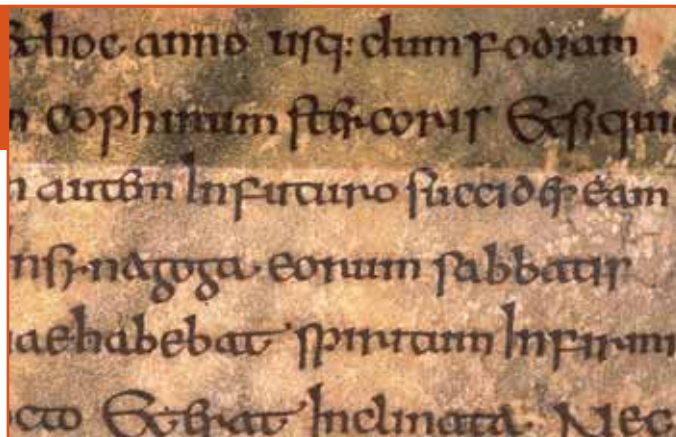 Ethoc anno usq: dum fodiam
cophinum stercoris Etsiqui
autem Infuturo succider eam
insinagoga eorum sabbatis
aehabebat spiritum Infirmi
cto Eterat Inclinata Nec